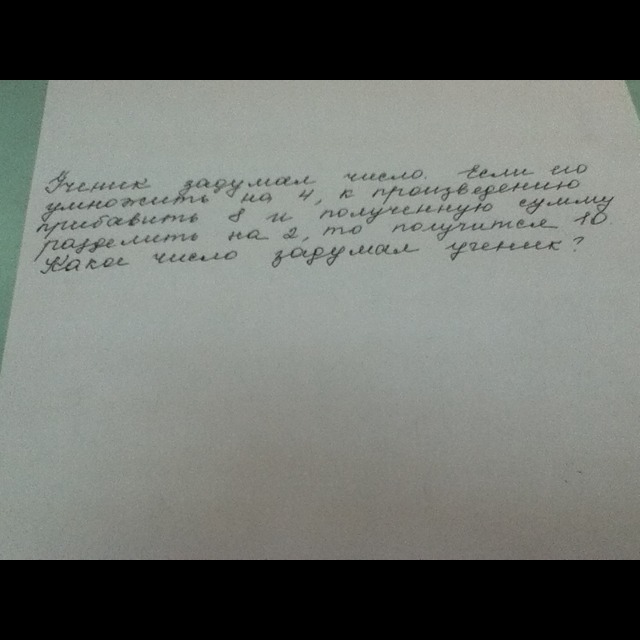 Ученик задумал число. Если его
умножить на 4, к произведению
прибавить 8 и полученную сумму
разделить на 2, то получится 10.
Какое число задумал ученик?